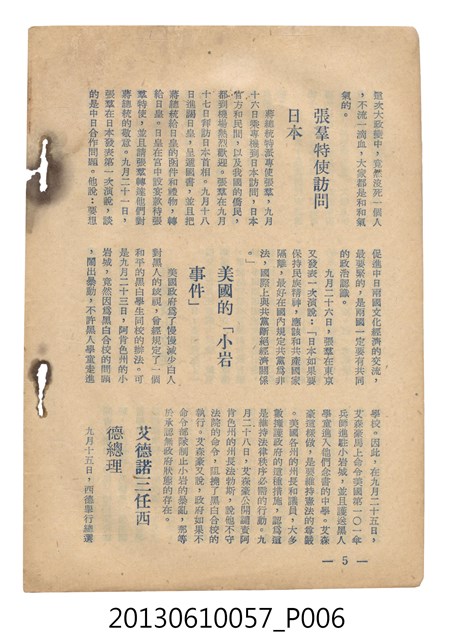 這次大政變中，竟然沒死一個人
，不流一滴血，大家都是和和氣
氣的。
張羣特使訪問
日本
蔣總統特派專使張羣，九月
十六日乘專機到日本訪問，日本
官方和民間，以及我國的僑民，
都到機場熱烈歡迎。張羣在九月
十七日拜訪日本首相。九月十八
日進謁日皇，呈遞國書，並且把
蔣總統給日皇的函件和禮物，轉
給日皇。日皇在宮中設宴款待張
羣特使，並且請張羣轉達他們對
蔣總統的敬意。九月二十一日，
張羣在日本發表第一次演說，談
的是中日合作問題。他說：要想
促進中日兩國文化經濟的交流，
最要緊的，是兩國一定要有共同
的政治認識。
九月二十六日，張羣在東京
又發表一次演說：「日本如果要
保持民族精神，應該和共產國家
隔離，最好在國內規定共黨為非
法，國際上與共黨斷絕經濟關係
。」
美國的「小岩
事件」
美國政府為了慢慢減少白人
對黑人的歧視，曾經規定了一個
和平的黑白學生同校的辦法。可
是九月二十三日，阿肯色州的小
岩城，竟然因為黑白合校的問題
，鬧出暴動，不許黑人學童走進
學校。因此，在九月二十五日，
艾森豪馬上命令美國第一〇一傘
兵師進駐小岩城，並且護送黑人
學童進入他們念書的中學。艾森
豪這樣做，是要維持憲法的尊嚴
。美國各州的州長和議員，大多
數擁護政府的這種措施，認為這
是維持法律秩序必需的行動。九
月二十八日，艾森豪公開譴責阿
肯色州的州長法勃斯，說他不守
法院的命令，阻撓了黑白合校的
執行。艾森豪又說，政府如果不
命令部隊制止小岩的暴亂，那等
於承認無政府狀態的存在。
艾德諾三任西
德總理
九月十五日，西德舉行總選
— 5 —
20130610057_P006